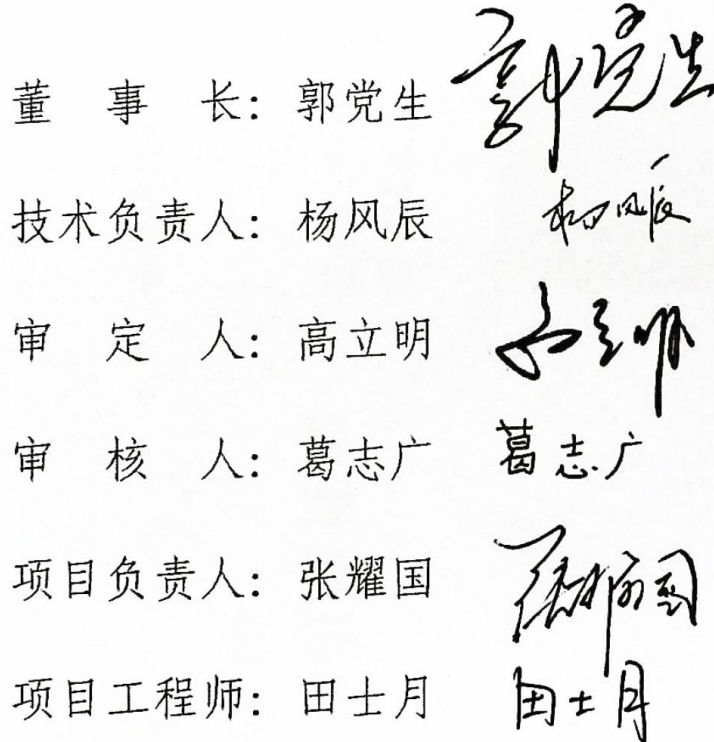 董事长：郭党生 郭党生
技术负责人：杨风辰 杨风辰
审定人：高立明 高立明
审核人：葛志广 葛志广
项目负责人：张耀国
项目工程师：田士月 田士月